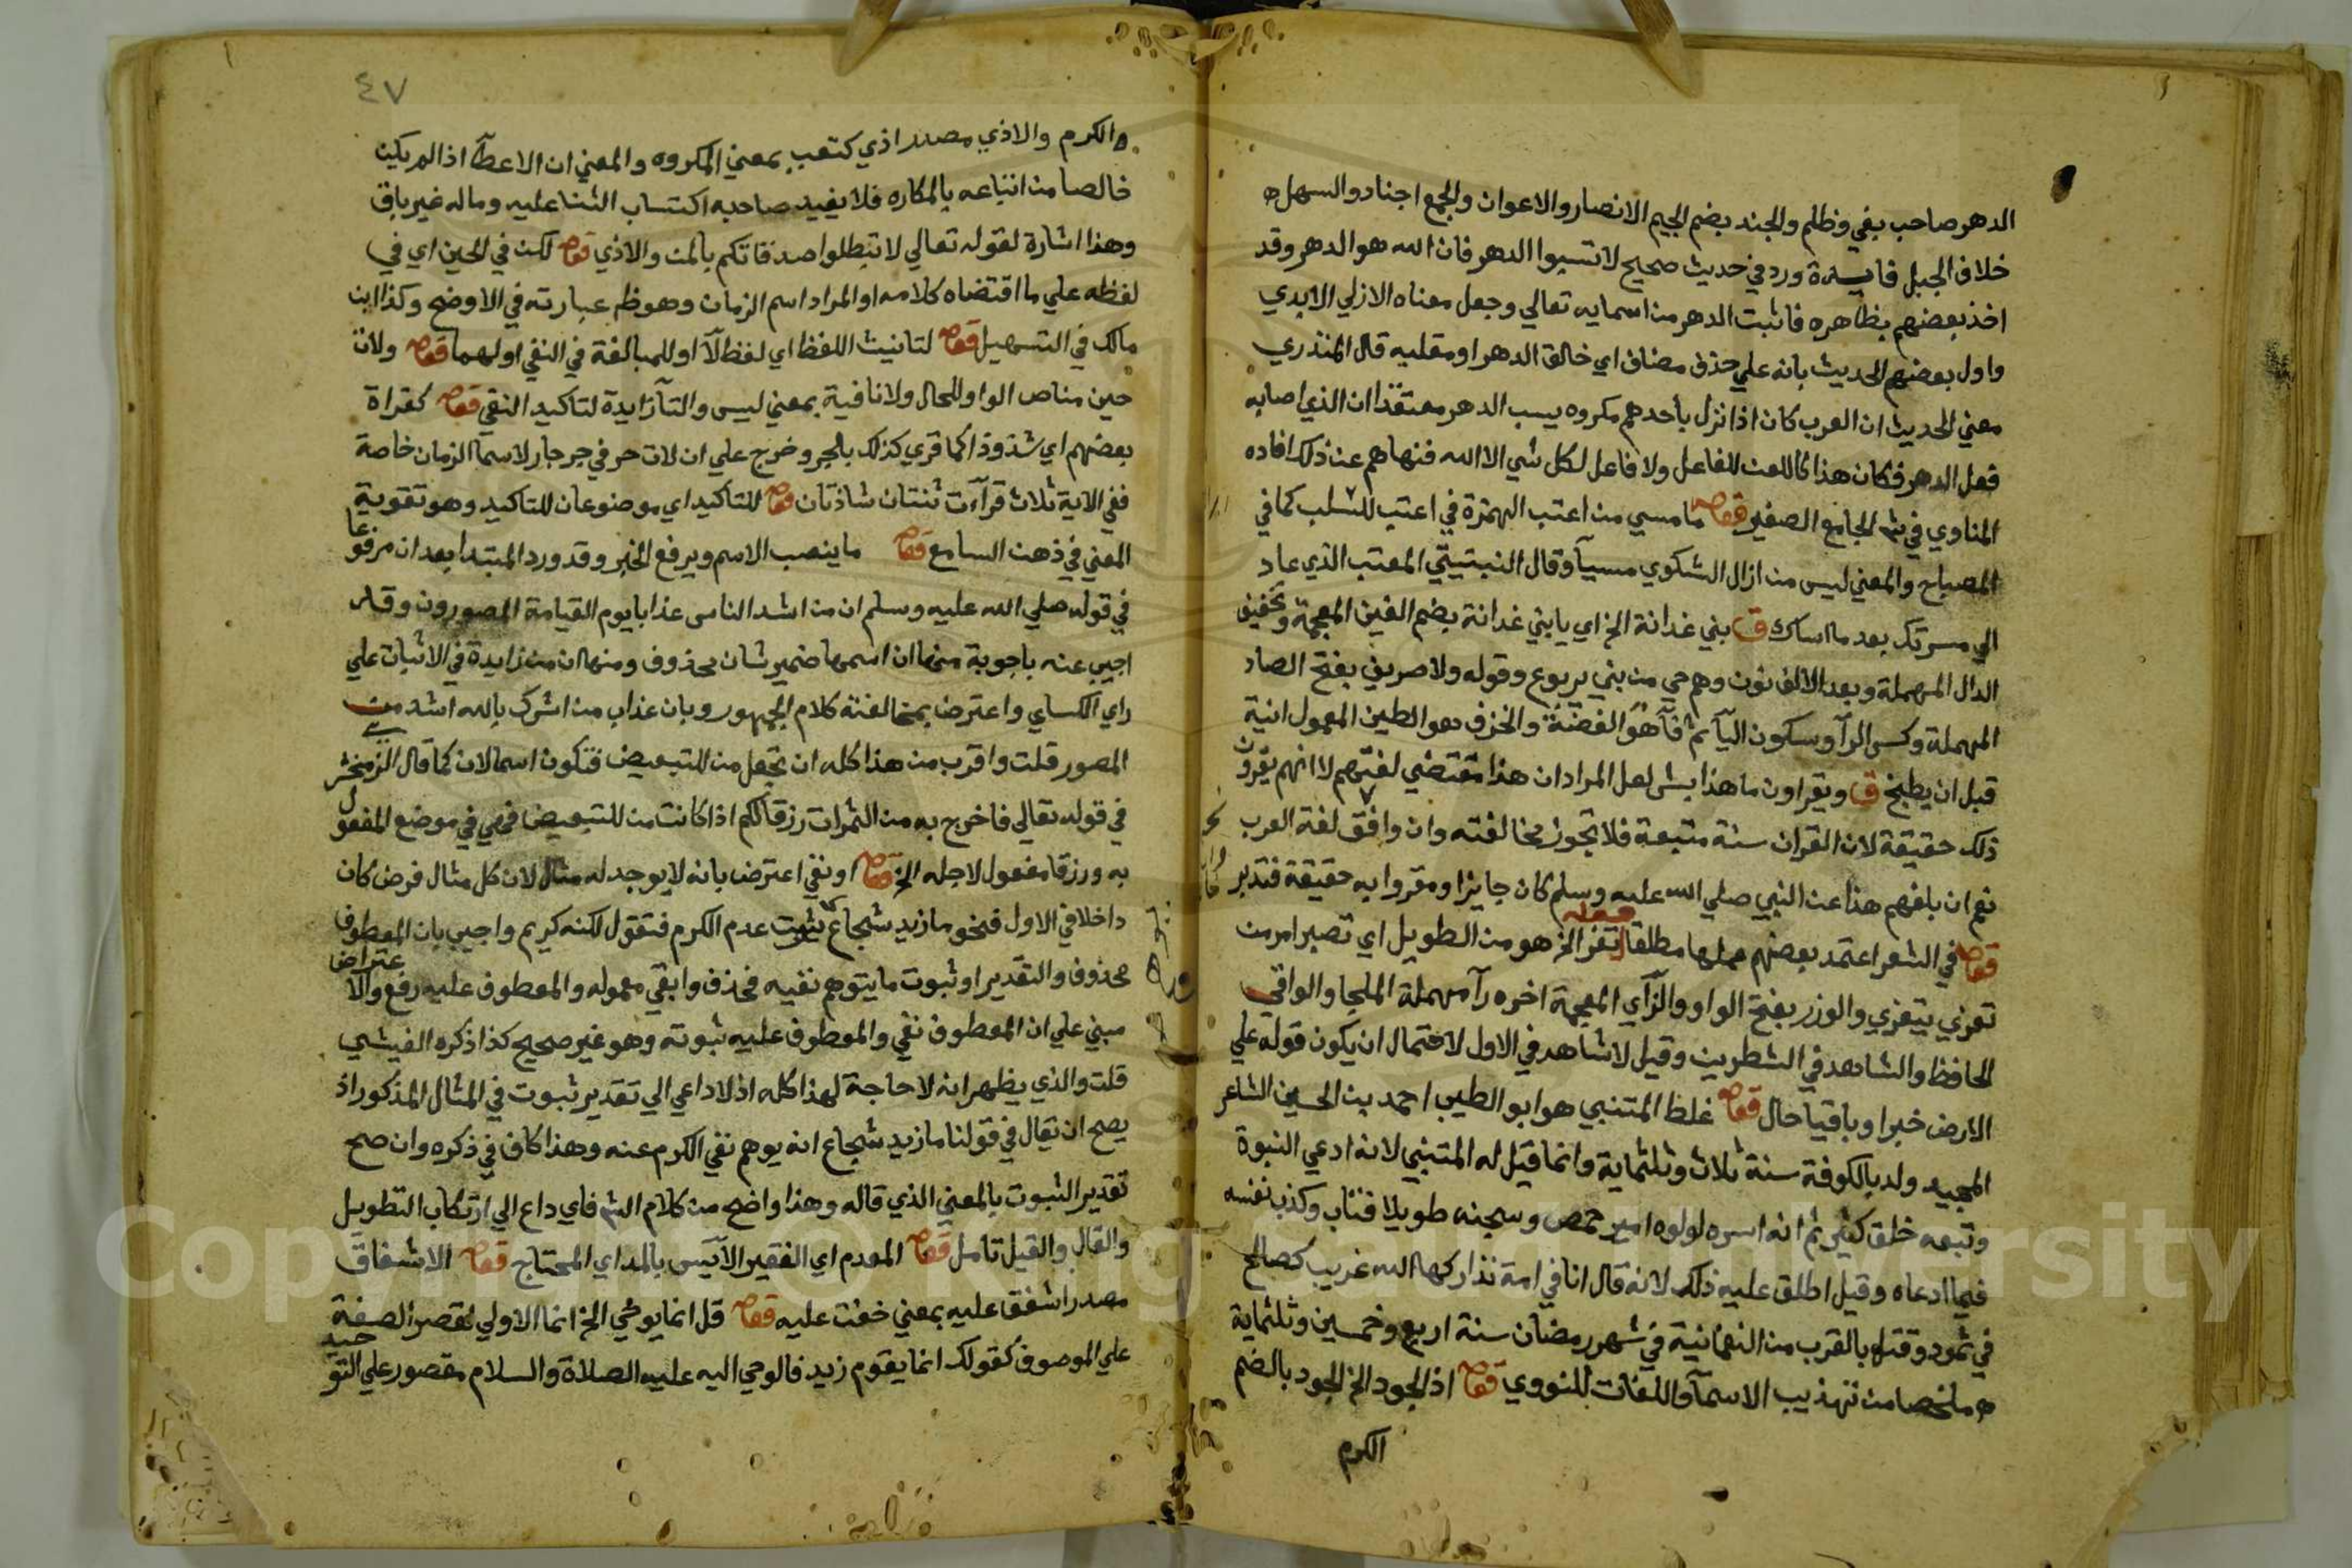 الدهر صاحب بغي وظلم والجند بضم الجيم الانصار والاعوان والجمع اجناد والسهل ه
خلاف الجبل فايدة ورد في حديث صحيح لا تسبوا الدهر فان الله هو الدهر وقد
اخذ بعضهم بظاهره فاثبت الدهر من اسمايه تعالي وجعل معناه الازلي الابدي
واول بعضهم الحديث بانه علي حذف مضاف اي خالق الدهر او مقلبه قال المنذري
معني الحديث ان العرب كان اذا نزل باحدهم مكروه يسب الدهر معتقدا ان الذي اصابه
فعل الدهر فكان هذا كاللعن للفاعل ولا فاعل لكل شي الا الله فنهاهم عن ذلك افاده
المناوي في شر الجامع الصغير قوله ما مسي من اعتب الهمزة في اعتب للسلب كما في
المصباح والمعني ليس من ازال الشكوي مسيآ وقال النبتيتي المعتب الذي عاد
الي مسرتك بعد ما اساك ق بني غدانة الخ اي يا بني غدانة بضم الغين المعجمة وتخفيف
الدال المهملة وبعد الالف نون وهم حي من بني يربوع وقوله ولا صريف بفتح الصاد
المهملة وكسر الرآ وسكون اليآ ثم فآ هو الفضة والخزف هو الطين المعمول انية
قبل ان يطبخ ق ويقراون ما هذا بشر لعل المراد ان هذا مقتضي لغتهم لا انهم يقرون
ذلك حقيقة لان القران سنة متبعة فلا تجوز مخالفته وان وافق لغة العرب
نعم ان بلغهم هذا عن النبي صلي الله عليه وسلم كان جايزا ومقروا به حقيقة فتدبر
قوله في الشعر اعتمد بعضهم عملها مطلقا قوله تعز الخ هو من الطويل اي تصبر امر من
تعزي يتعزي والوزر بفتح الواو والزآي المعجمة اخره رآ مهملة الملجا والواقي
الحافظ والشاهد في الشطرين وقيل لا شاهد في الاول لاحتمال ان يكون قوله علي
الارض خبرا وباقيا حال قوله غلظ المتنبي هو ابو الطيب احمد بن الحسين الشاعر
المجيد ولد بالكوفة سنة ثلاث وثلثماية وانما قيل له المتنبي لانه ادعي النبوة
وتبعه خلق كثير ثم انه اسره لولوه امير حمص وسجنه طويلا فتاب وكذب نفسه
فيما ادعاه وقيل اطلق عليه ذلك لانه قال انا في امة تداركها الله غريب كصالح
في ثمود وقتل بالقرب من النعمانية في شهر رمضان سنة اربع وخمسين وثلثماية
ه ملخصا من تهذيب الاسمآ واللغات للنووي قوله اذ الجود الخ الجود بالضم
الكرم
٤٧
ه الكرم والاذي مصدر اذي كتعب بمعني المكروه والمعني ان الاعطآ اذا لم يكن
خالصا من اتباعه بالمكاره فلا يفيد صاحبه اكتساب الثنا عليه وماله غير باق
وهذا اشارة لقوله تعالي لا تبطلوا صدقاتكم بالمن والاذي قوله لكن في الحين اي في
لفظه علي ما اقتضاه كلامه او المراد اسم الزمان وهو ظ عبارته في الاوضح وكذا ابن
مالك في التسهيل قوله لتانيث اللفظ اي لفظ لآ او للمبالغة في النفي اولهما قوله ولات
حين مناص الواو للحال ولا نافية بمعني ليس والتآ زايدة لتاكيد النفي قوله كقراة
بعضهم اي شذوذا كما قري كذلك بالجر وخرج علي ان لات حرف جر جار لاسما الزمان خاصة
ففي الاية ثلاث قرآءت ثنتان شاذتان قوله للتاكيد اي موضوعان للتاكيد وهو تقوية
المعني في ذهن السامع قوله ما ينصب الاسم ويرفع الخبر وقد ورد المبتدا بعد ان مرفوعا
في قوله صلي الله عليه وسلم ان من اشد الناس عذابا يوم القيامة المصورون وقد
اجيب عنه باجوبة منها ان اسمها ضمير شان محذوف ومنها ان من زايدة في الاثبات علي
راي الكساي واعترض بمخالفته كلام الجمهور وبان عذاب من اشرك بالله اشد من
المصور قلت واقرب من هذا كله ان تجعل من للتبعيض فتكون اسما لان كما قال الزمخشري
في قوله تعالي فاخرج به من الثمرات رزقا لكم اذا كانت من للتبعيض فهي في موضع المفعول
به ورزقا مفعول لاجله الخ قوله او نفي اعترض بانه لا يوجد له مثال لان كل مثال فرض كان
داخلا في الاول فنحو ما زيد شجاع يثبت عدم الكرم فتقول لكنه كريم واجيب بان المعطوف
محذوف والتقدير او ثبوت ما يتوهم نفيه فحذف وابقي معموله والمعطوف عليه رفع والاعتراض
مبني علي ان المعطوف نفي والمعطوف عليه ثبوته وهو غير صحيح كذا ذكره الفيشي
قلت والذي يظهر انه لا حاجة لهذا كله اذ لا داعي الي تقدير ثبوت في المثال المذكور اذ
يصح ان يقال في قولنا ما زيد شجاع انه يوهم نفي الكرم عنه وهذا كاف في ذكره وان صح
تقدير الثبوت بالمعني الذي قاله وهذا واضح من كلام الش فاي داع الي ارتكاب التطويل
والقال والقيل تامل قوله المعدم اي الفقير الآيس بالمد اي المحتاج قوله الاشفاق
مصدر اشفق عليه بمعني خفت عليه قوله قل انما يوحي الخ انما الاولي لقصر الصفة
علي الموصوف كقولك انما يقوم زيد فالوحي اليه عليه الصلاة والسلام مقصور علي التوحيد